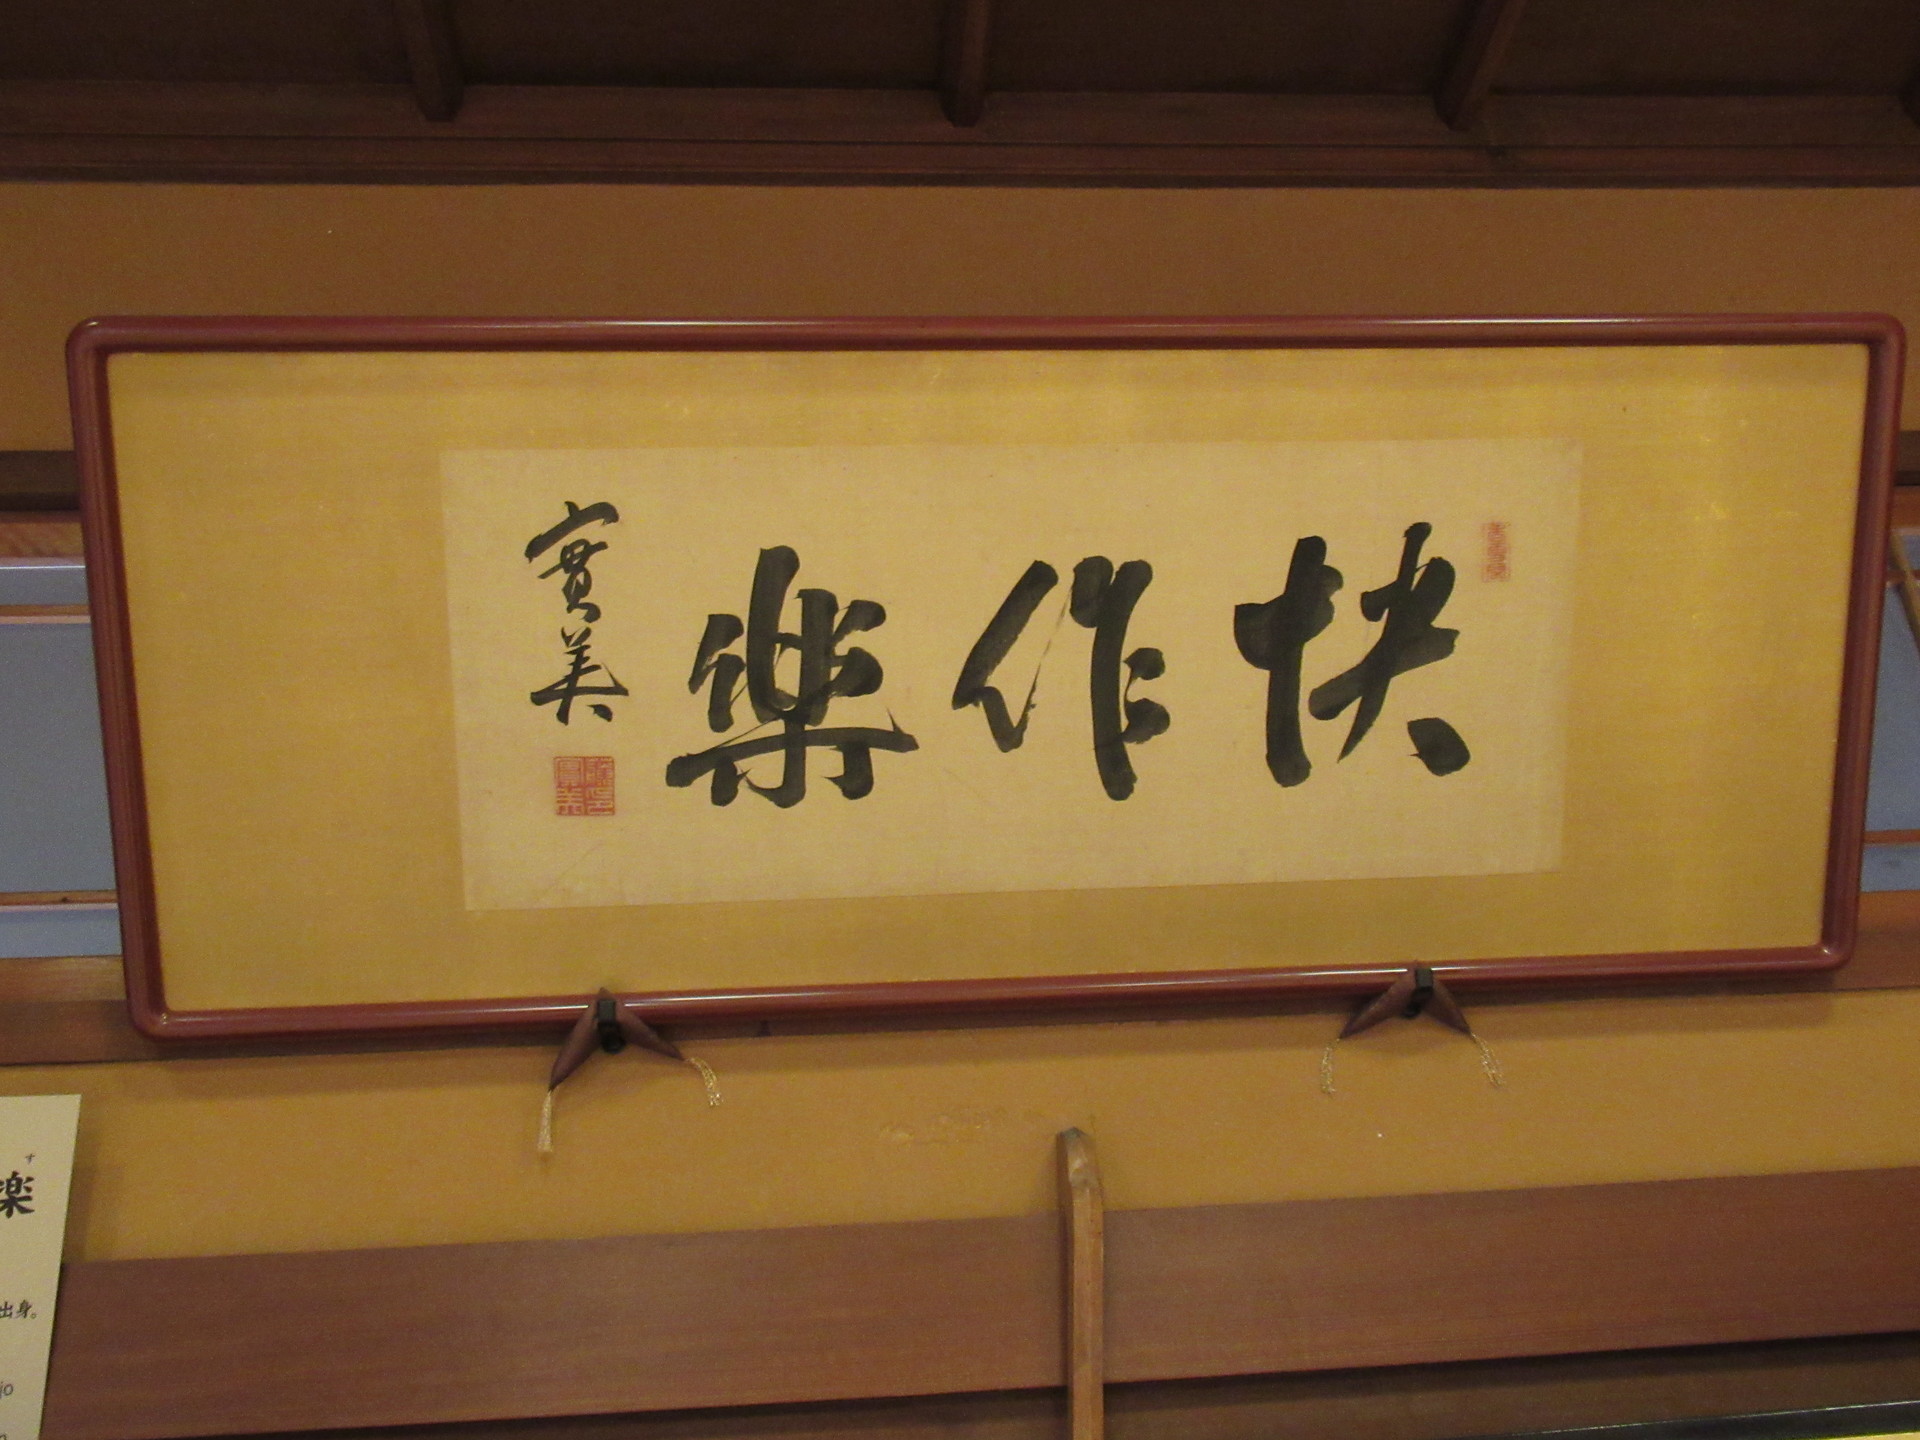 快作樂
實美
楽
す
出身。
jo